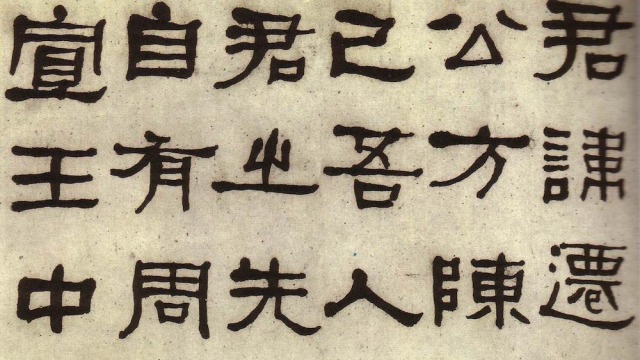 君諱遷
公方陳
己吾人
君之先
自有周
宣王中